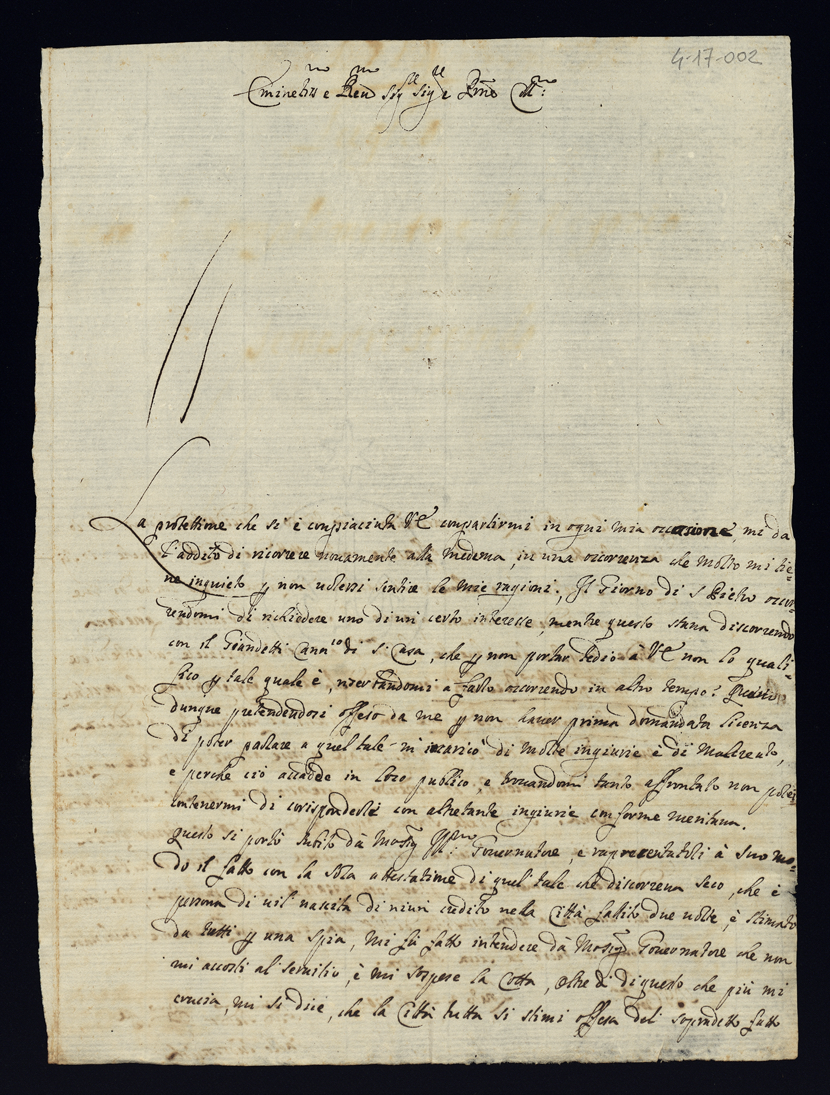 4-17-002
Eminentiss.mo e Reu.mo Sig.re Sig.re e Pne
La protettione che si è conpiaciuta VE conpartirmi in ogni mia occasione, mi da
l'addito di ricorrere nouamente alla medema, in una occorrenza che molto mi tie=
ne inquieto p non uolersi sentire le mie ragioni. Il Giorno di S Pietro occor=
rendomi di richiedere uno di un certo interesse, mentre questo staua discorrendo
con il Giandetti Cann.co di S. Casa, che p non portar tedio à VE non lo quali=
fico p tale quale è, riserbandomi a farlo occorrendo in altro tempo:
dunque pretendendosi offeso da me p non hauer prima domandata licenza
di poter parlare a quel tale mi incaricò di molte ingiurie e di Malcreato,
e perche ciò accadde in loco publico, e trouandomi tanto affrontato non potei
contenermi di corisponderli con altretante ingiurie conforme meritaua.
Questo si portò subito dà Monsig. Gouernatore, e rapresentatoli à suo mo=
do il fatto con la sola attestatione di quel tale che discorreua seco, che è
persona di uil nascita di niun credito nella Città fallito due uolte, è stimato
da tutti p una spia, mi fù fatto intendere dà Monsig. Gouernatore che non
mi accosti al seruitio, è mi sospese la Cotta, oltre di questo che più mi
crucia, mi si dice, che la Città tutta si stimi offesa del sopradetto fatto